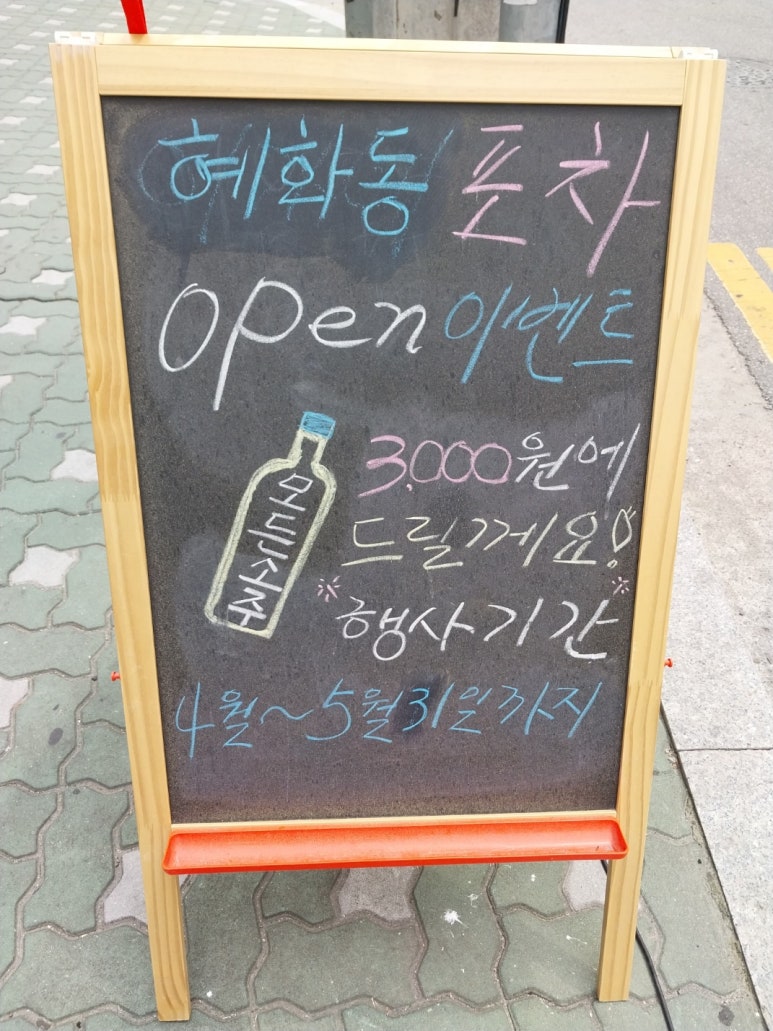 혜화동 포차
open 이벤트
모든소주
3,000원에
드릴께요!
행사기간
4월~5월31일까지